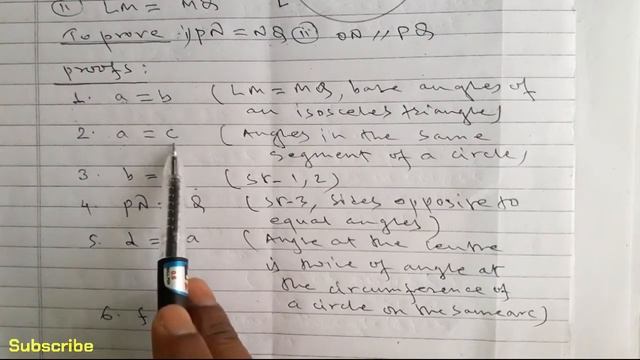 ii LM = MQ L
To prove: i) PN = NQ ii) ON // PQ
proofs:
1. a = b (LM = MQ, base angles of
an isosceles triangle)
2. a = c (Angles in the same
segment of a circle)
3. b = (Sr-1, 2)
4. PN = Q (Sr-3, sides opposite to
equal angles)
5. d = a (Angle at the centre
is twice of angle at
the circumference of
a circle on the same arc)
6. f
Subscribe